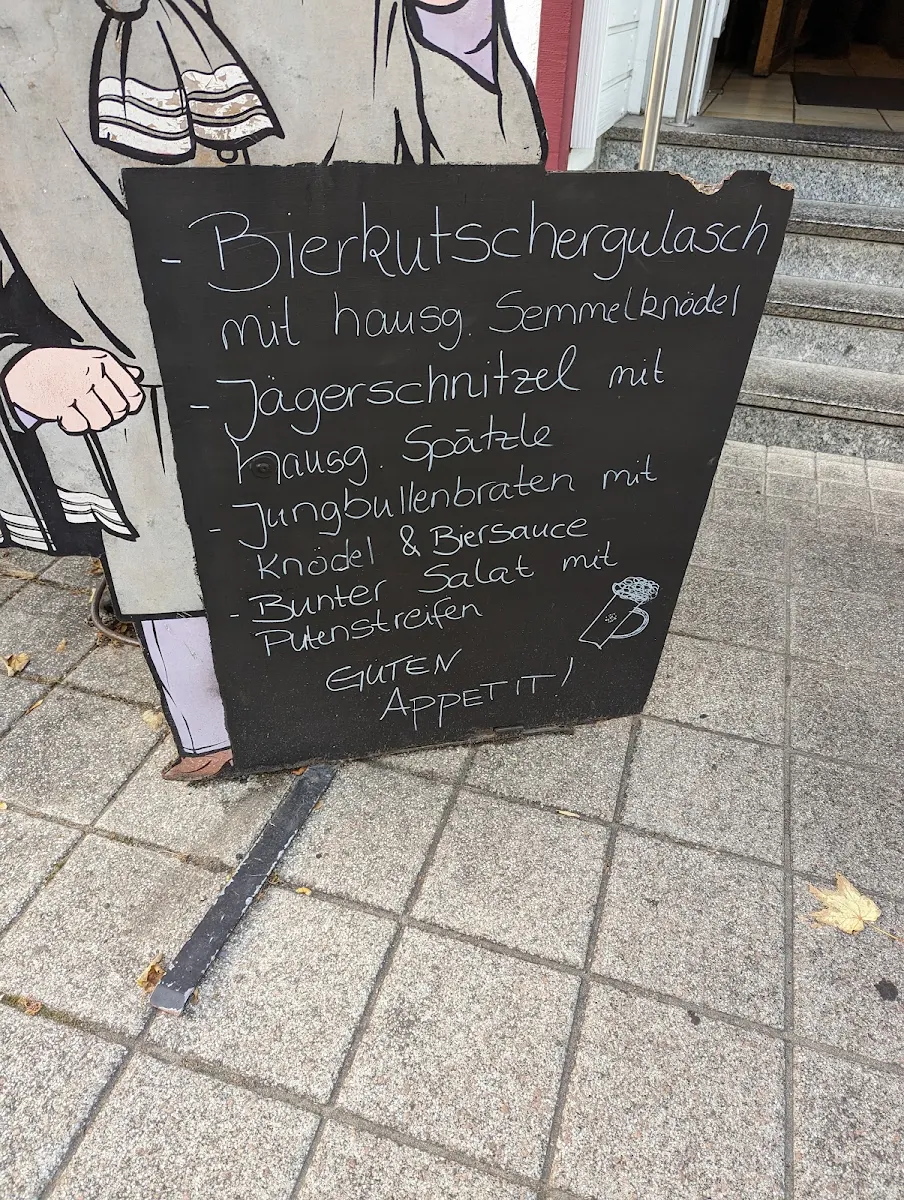 - Bierkutschergulasch
mit hausg. Semmelknödel
- Jägerschnitzel mit
hausg. Spätzle
- Jungbullenbraten mit
Knödel & Biersauce
- Bunter Salat mit
Putenstreifen
GUTEN
APPETIT!